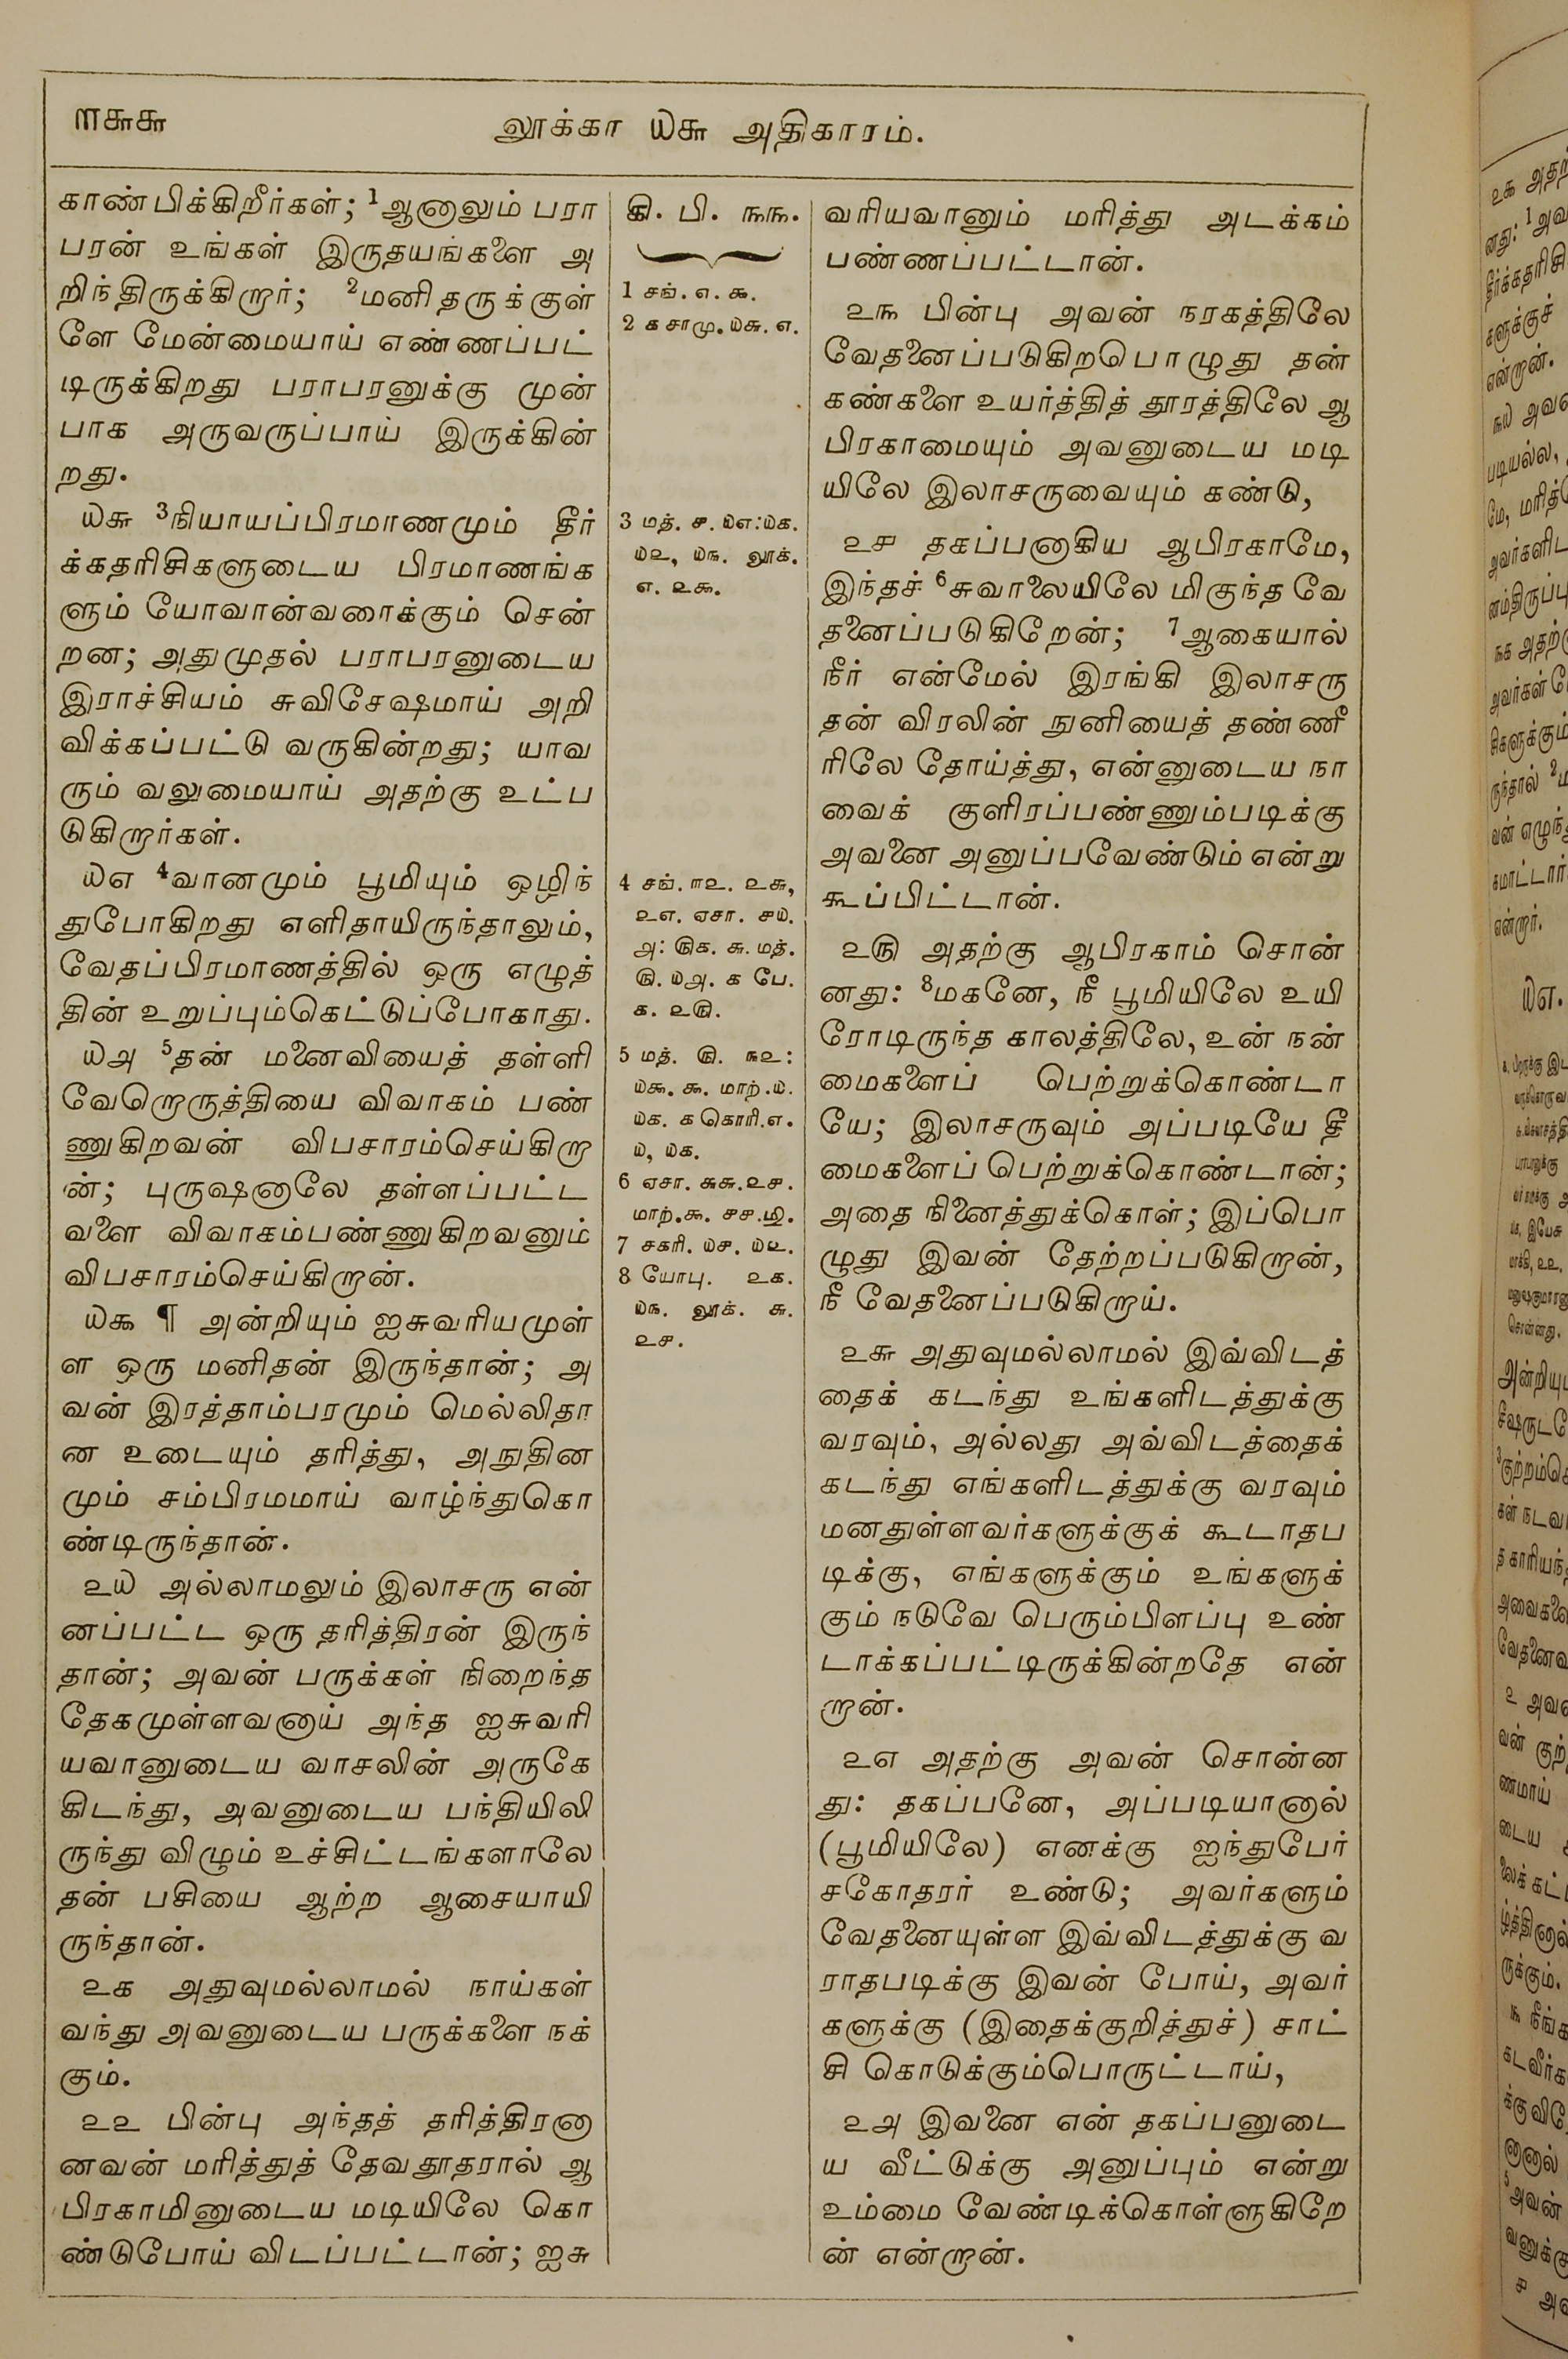 ௱௬௬
லூக்கா ௰௬ அதிகாரம்.
காண்பிக்கிறீர்கள்; 1ஆனாலும் பரா
பரன் உங்கள் இருதயங்களை அ
றிந்திருக்கிறார்; 2மனிதருக்குள்
ளே மேன்மையாய் எண்ணப்பட்
டிருக்கிறது பராபரனுக்கு முன்
பாக அருவருப்பாய் இருக்கின்
றது.
௰௬ 3நியாயப்பிரமாணமும் தீர்
க்கதரிசிகளுடைய பிரமாணங்க
ளும் யோவான்வரைக்கும் சென்
றன; அதுமுதல் பராபரனுடைய
இராச்சியம் சுவிசேஷமாய் அறி
விக்கப்பட்டு வருகின்றது; யாவ
ரும் வலுமையாய் அதற்கு உட்ப
டுகிறார்கள்.
௰௭ 4வானமும் பூமியும் ஒழிந்
துபோகிறது எளிதாயிருந்தாலும்,
வேதப்பிரமாணத்தில் ஒரு எழுத்
தின் உறுப்பும்கெட்டுப்போகாது.
௰௮ 5தன் மனைவியைத் தள்ளி
வேறொருத்தியை விவாகம் பண்
ணுகிறவன் விபசாரம்செய்கிறா
ன்; புருஷனாலே தள்ளப்பட்ட
வளை விவாகம்பண்ணுகிறவனும்
விபசாரம்செய்கிறான்.
௰௯ ¶ அன்றியும் ஐசுவரியமுள்
ள ஒரு மனிதன் இருந்தான்; அ
வன் இரத்தாம்பரமும் மெல்லிதா
ன உடையும் தரித்து, அநுதின
மும் சம்பிரமமாய் வாழ்ந்துகொ
ண்டிருந்தான்.
௨௰ அல்லாமலும் இலாசரு என்
னப்பட்ட ஒரு தரித்திரன் இருந்
தான்; அவன் பருக்கள் நிறைந்த
தேகமுள்ளவனாய் அந்த ஐசுவரி
யவானுடைய வாசலின் அருகே
கிடந்து, அவனுடைய பந்தியிலி
ருந்து விழும் உச்சிட்டங்களாலே
தன் பசியை ஆற்ற ஆசையாயி
ருந்தான்.
௨௧ அதுவுமல்லாமல் நாய்கள்
வந்து அவனுடைய பருக்களை நக்
கும்.
௨௨ பின்பு அந்தத் தரித்திரனா
னவன் மரித்துத் தேவதூதரால் ஆ
பிரகாமினுடைய மடியிலே கொ
ண்டுபோய் விடப்பட்டான்; ஐசு
கி. பி. ௩௩.
1 சங். ௭. ௯.
2 ௧ சாமு. ௰௬. ௭.
3 மத். ௪. ௰௭: ௰௧.
௰௨, ௰௩. லூக்.
௭. ௨௯.
4 சங். ௱௨. ௨௬,
௨௭. ஏசா. ௪௰.
௮: ௫௧. ௬. மத்.
௫. ௰௮. ௧ பே.
௧. ௨௫.
5 மத். ௫. ௩௨:
௰௯. ௯. மாற். ௰.
௰௧. ௧ கொரி. ௭.
௰, ௰௧.
6 ஏசா. ௬௬. ௨௪.
மாற். ௯. ௪௪.
7 சகரி. ௰௪. ௰௨.
8 யோபு. ௨௧.
௰௩. லூக். ௬.
௨௪.
வரியவானும் மரித்து அடக்கம்
பண்ணப்பட்டான்.
௨௩ பின்பு அவன் நரகத்திலே
வேதனைப்படுகிறபொழுது தன்
கண்களை உயர்த்தித் தூரத்திலே ஆ
பிரகாமையும் அவனுடைய மடி
யிலே இலாசருவையும் கண்டு,
௨௪ தகப்பனாகிய ஆபிரகாமே,
இந்தச் 6சுவாலையிலே மிகுந்த வே
தனைப்படுகிறேன்; 7ஆகையால்
நீர் என்மேல் இரங்கி இலாசரு
தன் விரலின் நுனியைத் தண்ணீ
ரிலே தோய்த்து, என்னுடைய நா
வைக் குளிரப்பண்ணும்படிக்கு
அவனை அனுப்பவேண்டும் என்று
கூப்பிட்டான்.
௨௫ அதற்கு ஆபிரகாம் சொன்
னது: 8மகனே, நீ பூமியிலே உயி
ரோடிருந்த காலத்திலே, உன் நன்
மைகளைப் பெற்றுக்கொண்டா
யே; இலாசருவும் அப்படியே தீ
மைகளைப் பெற்றுக்கொண்டான்;
அதை நினைத்துக்கொள்; இப்பொ
ழுது இவன் தேற்றப்படுகிறான்,
நீ வேதனைப்படுகிறாய்.
௨௬ அதுவுமல்லாமல் இவ்விடத்
தைக் கடந்து உங்களிடத்துக்கு
வரவும், அல்லது அவ்விடத்தைக்
கடந்து எங்களிடத்துக்கு வரவும்
மனதுள்ளவர்களுக்குக் கூடாதப
டிக்கு, எங்களுக்கும் உங்களுக்
கும் நடுவே பெரும்பிளப்பு உண்
டாக்கப்பட்டிருக்கின்றதே என்
றான்.
௨௭ அதற்கு அவன் சொன்ன
து: தகப்பனே, அப்படியானால்
(பூமியிலே) எனக்கு ஐந்துபேர்
சகோதரர் உண்டு; அவர்களும்
வேதனையுள்ள இவ்விடத்துக்கு வ
ராதபடிக்கு இவன் போய், அவர்
களுக்கு (இதைக்குறித்துச்) சாட்
சி கொடுக்கும்பொருட்டாய்,
௨௮ இவனை என் தகப்பனுடை
ய வீட்டுக்கு அனுப்பும் என்று
உம்மை வேண்டிக்கொள்ளுகிறே
ன் என்றான்.